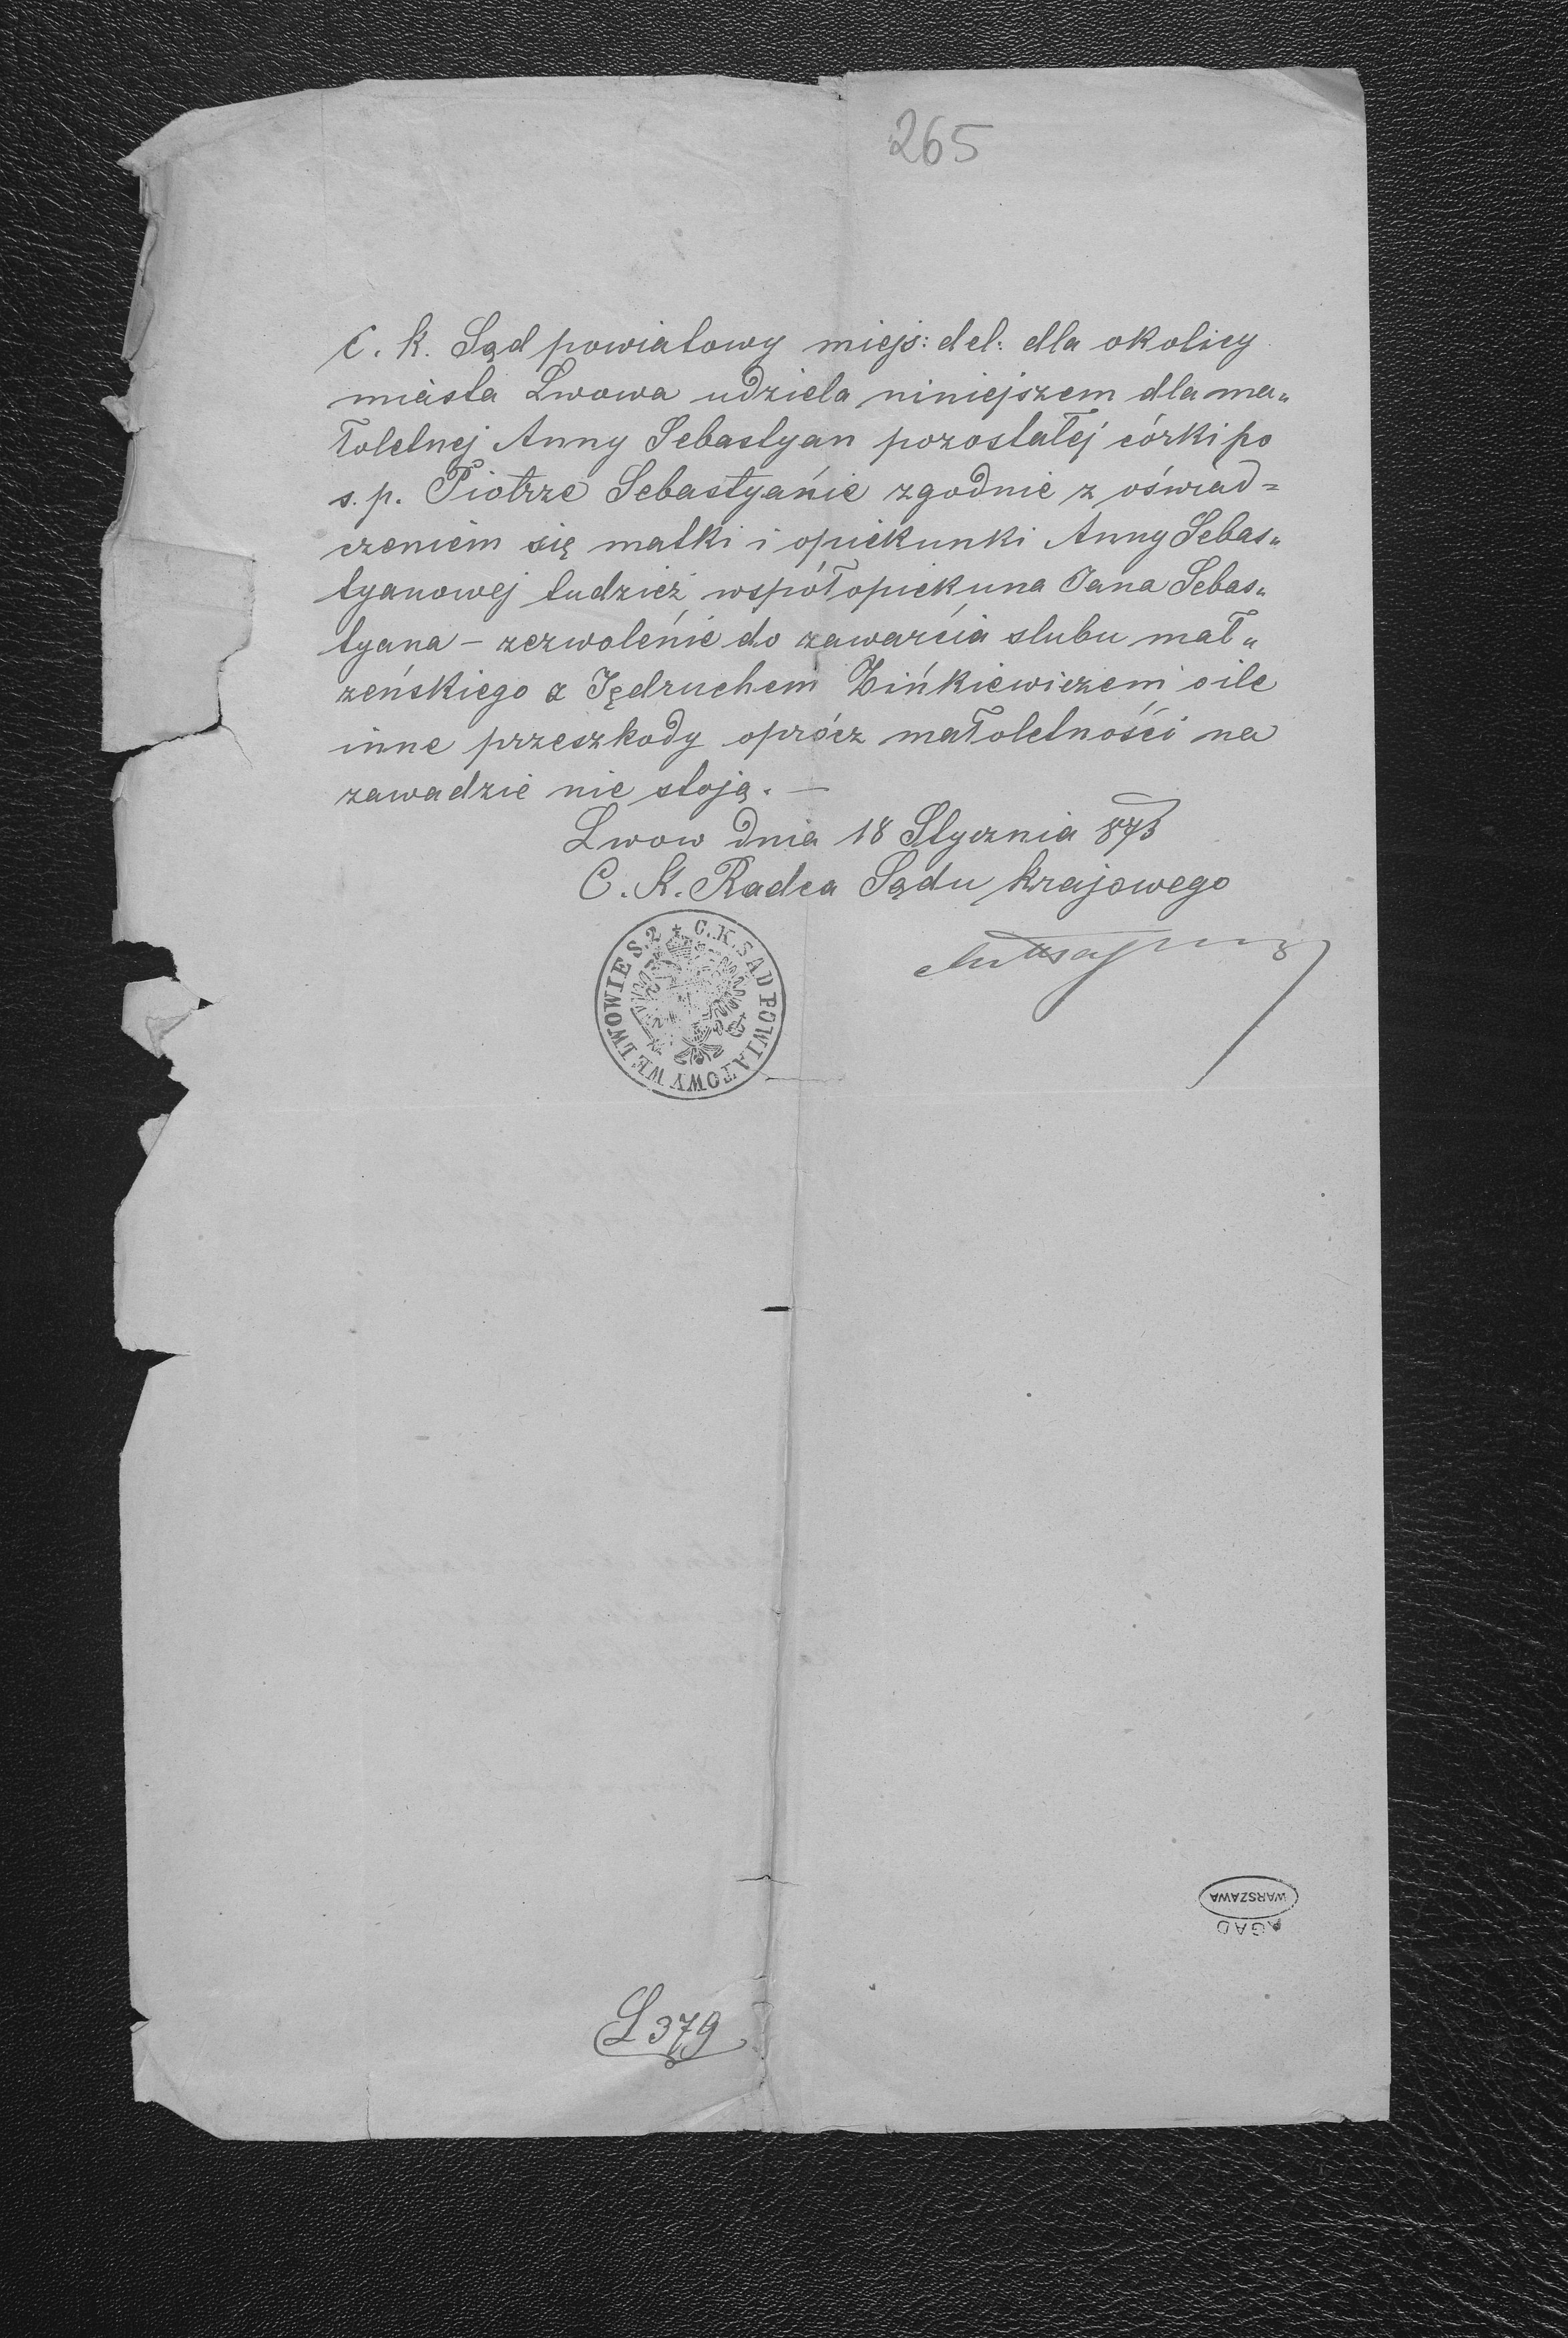 265
C. k. Sąd powiatowy miejs: del: dla okolicy
miasta Lwowa udziela niniejszem dla ma„
łoletnej Anny Sebastyan pozostałej córki po
s. p. Piotrze Sebastyańie zgodnie z oświad=
czeniem się matki i opiekunki Anny Sebas„
tyanowej tudzież współopiekuna Jana Sebas„
tyana – zezwolenie do zawarcia slubu mał„
zeńskiego z Jędruchem Zińkiewiczem o ile
inne przeszkody oprócz małoletnośći na
zawadzie nie stoją. —
Lwow dnia 18 Stycznia 873
C. K. Radca Sądu krajowego
C. K. SĄD POWIATOWY WE LWOWIE S. 2
WARSZAWA
AGAD
L 379